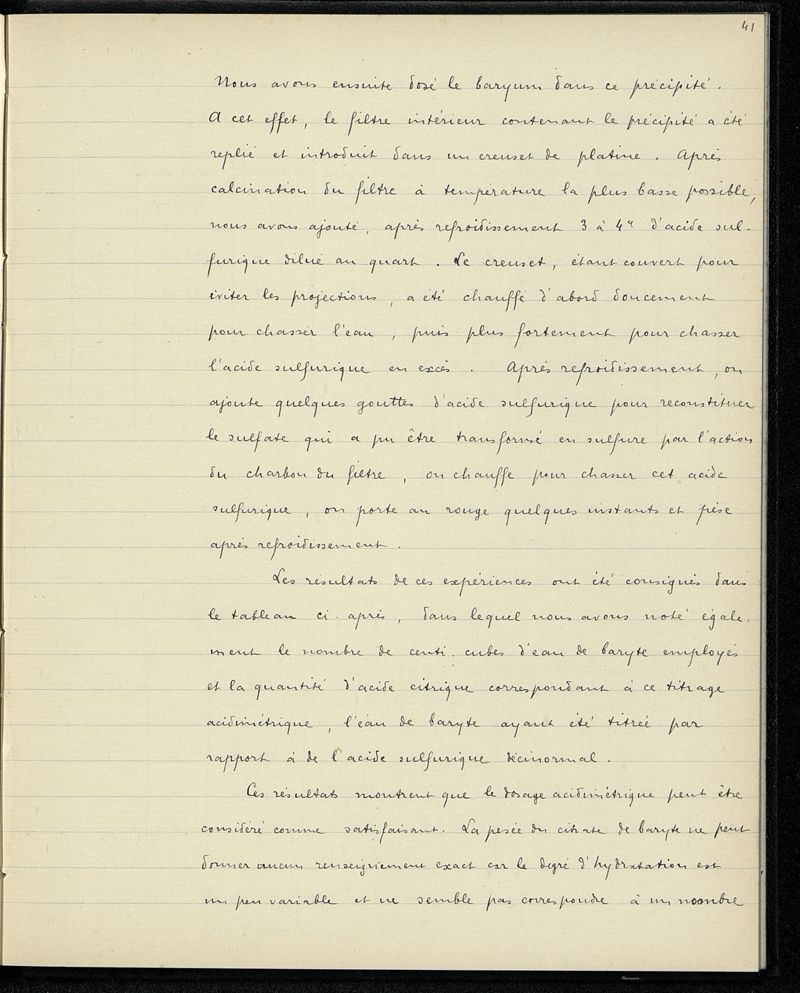 41
Nous avons ensuite dosé le baryum dans ce précipité.
A cet effet, le filtre intérieur contenant le précipité a été
replié et introduit dans un creuset de platine. Après
calcination du filtre à température la plus basse possible,
nous avons ajouté, après refroidissement 3 à 4cc d'acide sul-
furique dilué au quart. Le creuset, étant couvert pour
éviter les projections, a été chauffé d'abord doucement
pour chasser l'eau, puis plus fortement pour chasser
l'acide sulfurique en excès. Après refroidissement, on
ajoute quelques gouttes d'acide sulfurique pour reconstituer
le sulfate qui a pu être transformé en sulfure par l'action
du charbon du filtre, on chauffe pour chasser cet acide
sulfurique, on porte au rouge quelques instants et pèse
après refroidissement.
Les résultats de ces expériences ont été consignés dans
le tableau ci-après, dans lequel nous avons noté égale-
ment le nombre de centi. cubes d'eau de baryte employés
et la quantité d'acide citrique correspondant à ce titrage
acidimétrique, l'eau de baryte ayant été titrée par
rapport à de l'acide sulfurique décinormal.
Ces résultats montrent que le dosage acidimétrique peut être
considéré comme satisfaisant. La pesée du citrate de baryte ne peut
donner aucun renseignement exact car le degré d'hydratation est
un peu variable et ne semble pas correspondre à un nombre